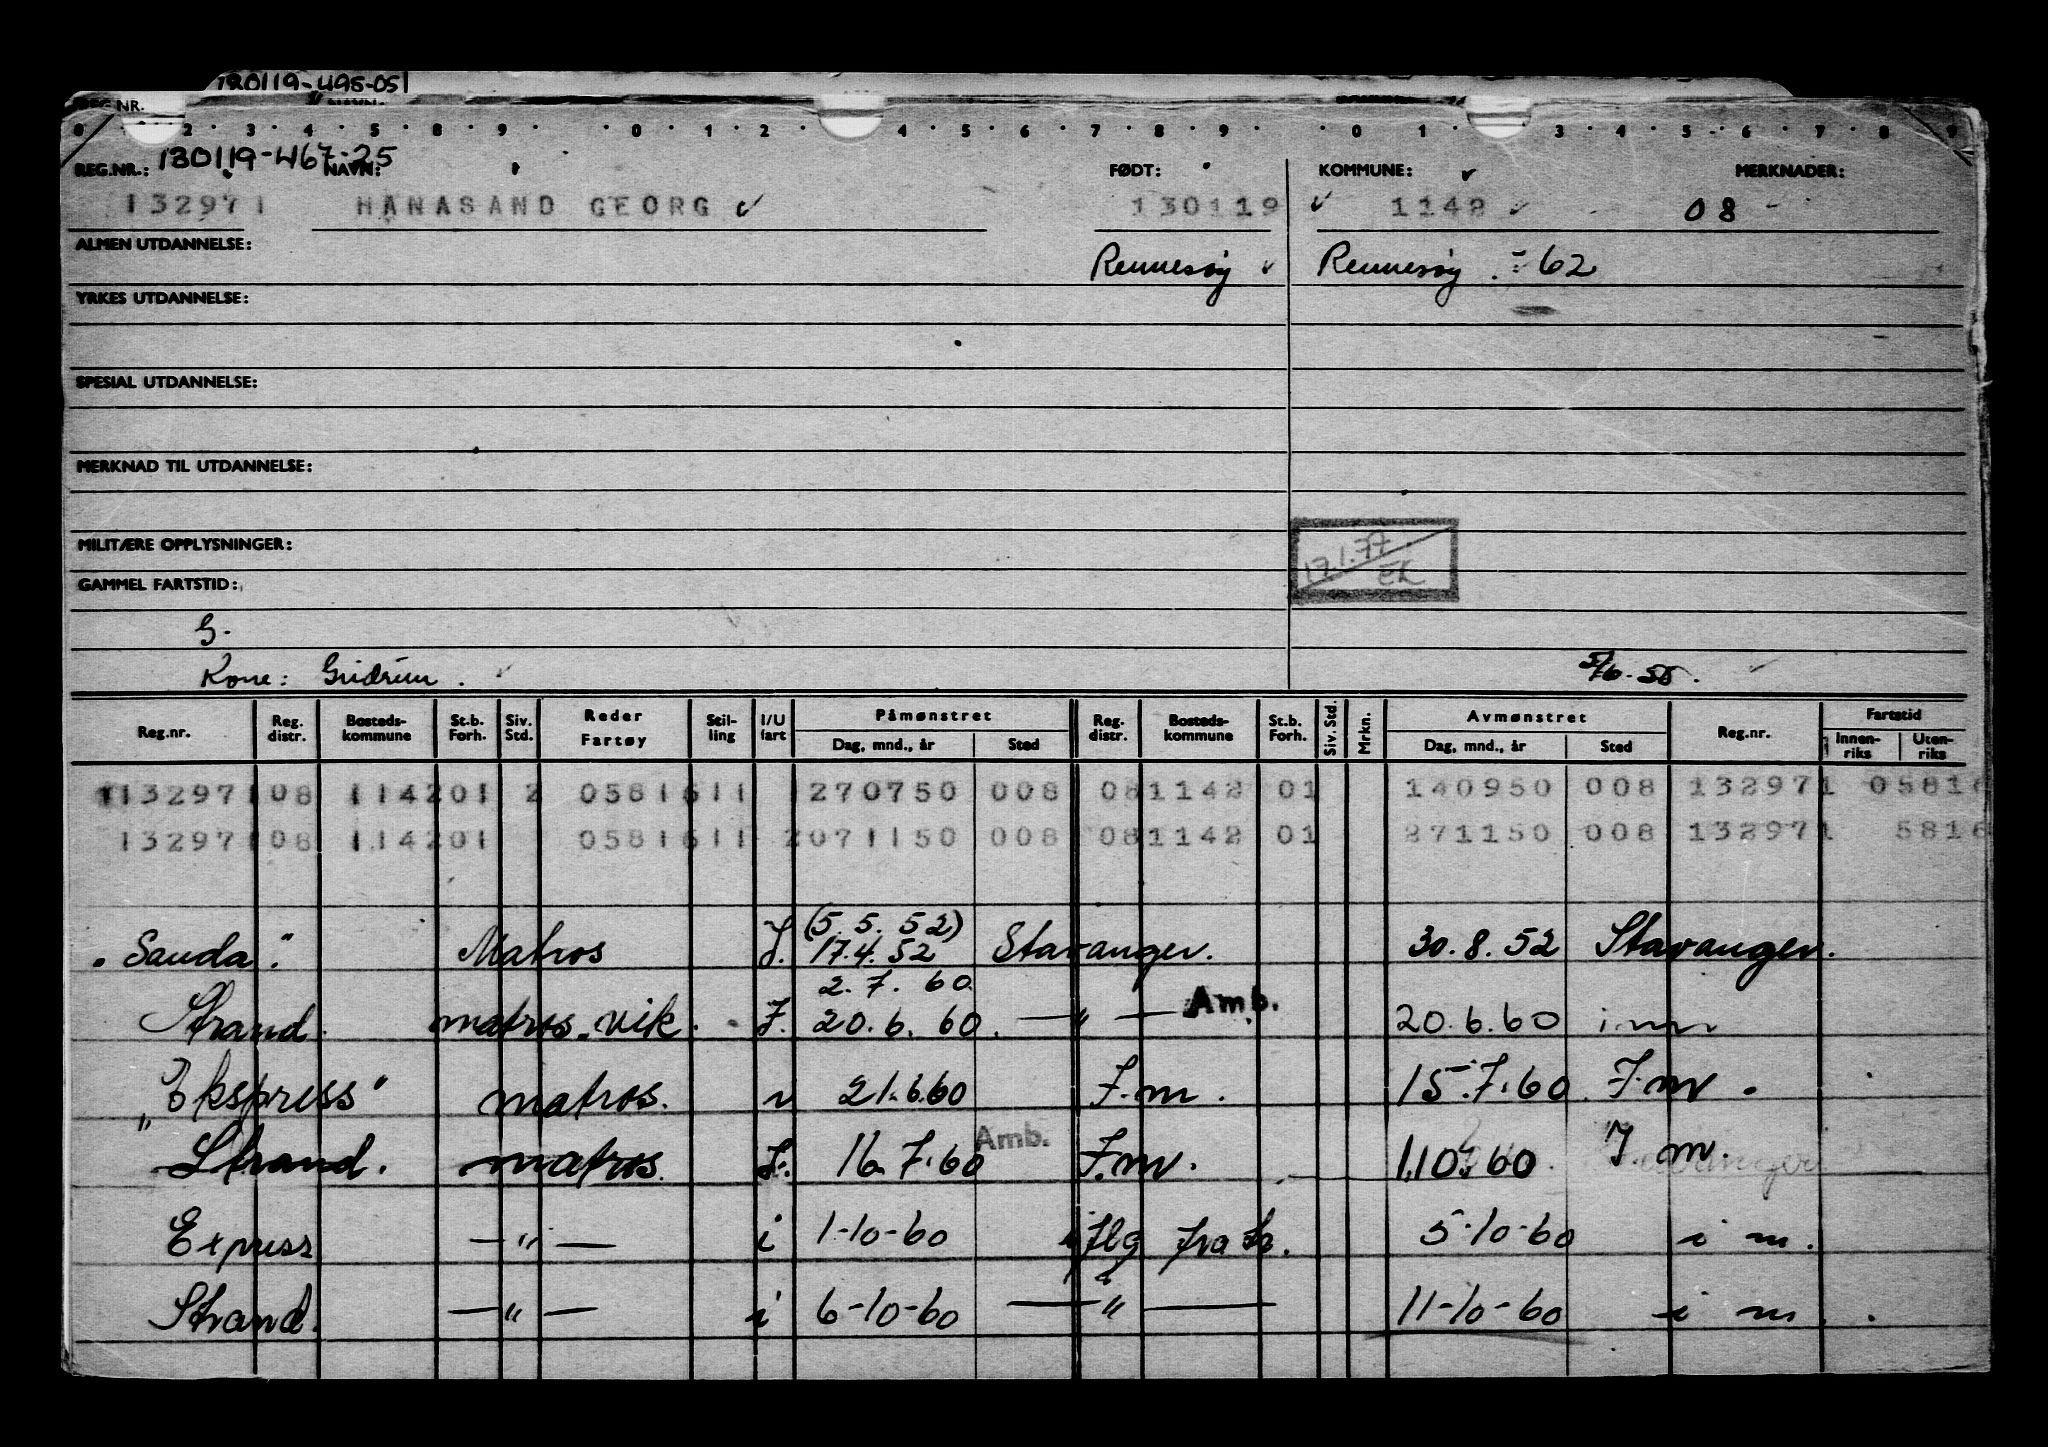 130119-495-05
REG.NR. NAVN:
0 2 3 4 5 8 9 0 1 2 4 5 6 7 8 9 0 1 3 4 5 6 7 8 9
130119-467-25
REG.NR.: NAVN: FØDT: KOMMUNE: MERKNADER:
132971 HANASAND GEORG 130119 1142 08
ALMEN UTDANNELSE: Rennesøy Rennesøy -62
YRKES UTDANNELSE:
SPESIAL UTDANNELSE:
MERKNAD TIL UTDANNELSE:
MILITÆRE OPPLYSNINGER:
17.1.77
EK
GAMMEL FARTSTID:
G.
Kone: Gudrun. 5/6-58.
Reg.nr. Reg. distr. Bosteds-kommune St.b. Forh. Siv. Std. Reder Fartøy Stil-ling I/U fart Påmønstret Dag, mnd., år Sted Reg. distr. Bosteds-kommune St.b. Forh. Siv. Std. Mrkn. Avmønstret Dag, mnd., år Sted Reg.nr. Fartstid Innen-riks Uten-riks
132971 08 1142 01 2 0581611 1 270750 008 08 1142 01 140950 008 132971 05816
132971 08 1142 01 0581611 2 071150 008 08 1142 01 271150 008 132971 5816
(5.5.52)
"Sauda". Matros I. 17.4.52 Stavanger. 30.8.52 Stavanger.
2.7.60
Strand. matros.vik. I. 20.6.60. — " — Amb. 20.6.60 i.m
"Ekspress" matros. i 21.6.60 I.m. 15.7.60. I.m.
Strand. matros. I. 16.7.60 Amb. I.m. 1.10.60 I.m.
Express — " — i 1-10-60 iflg fra h. 5-10-60 i m.
Strand. — " — i 6-10-60 — " — 11-10-60 i m.